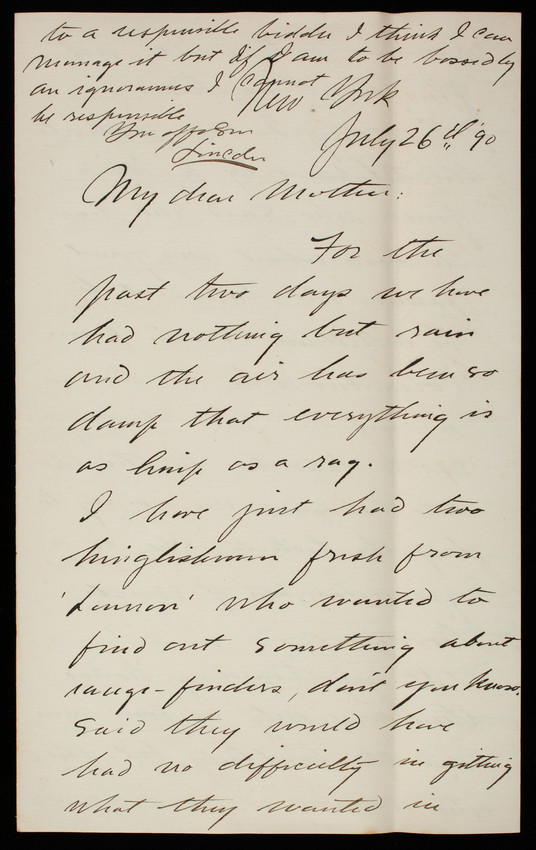 to a responsible bidder I think I can
manage it but if I am to be bossed by
an ignoramus I cannot
be responsible
Your aff son
Lincoln
New York
July 26th '90
My dear Mother:
For the
past two days we have
had nothing but rain
and the air has been so
damp that everything is
as limp as a rag.
I have just had two
hinglishmun fresh from
'Lunnon' who wanted to
find out something about
range-finders, don't you know.
Said they would have
had no difficulty in getting
what they wanted in